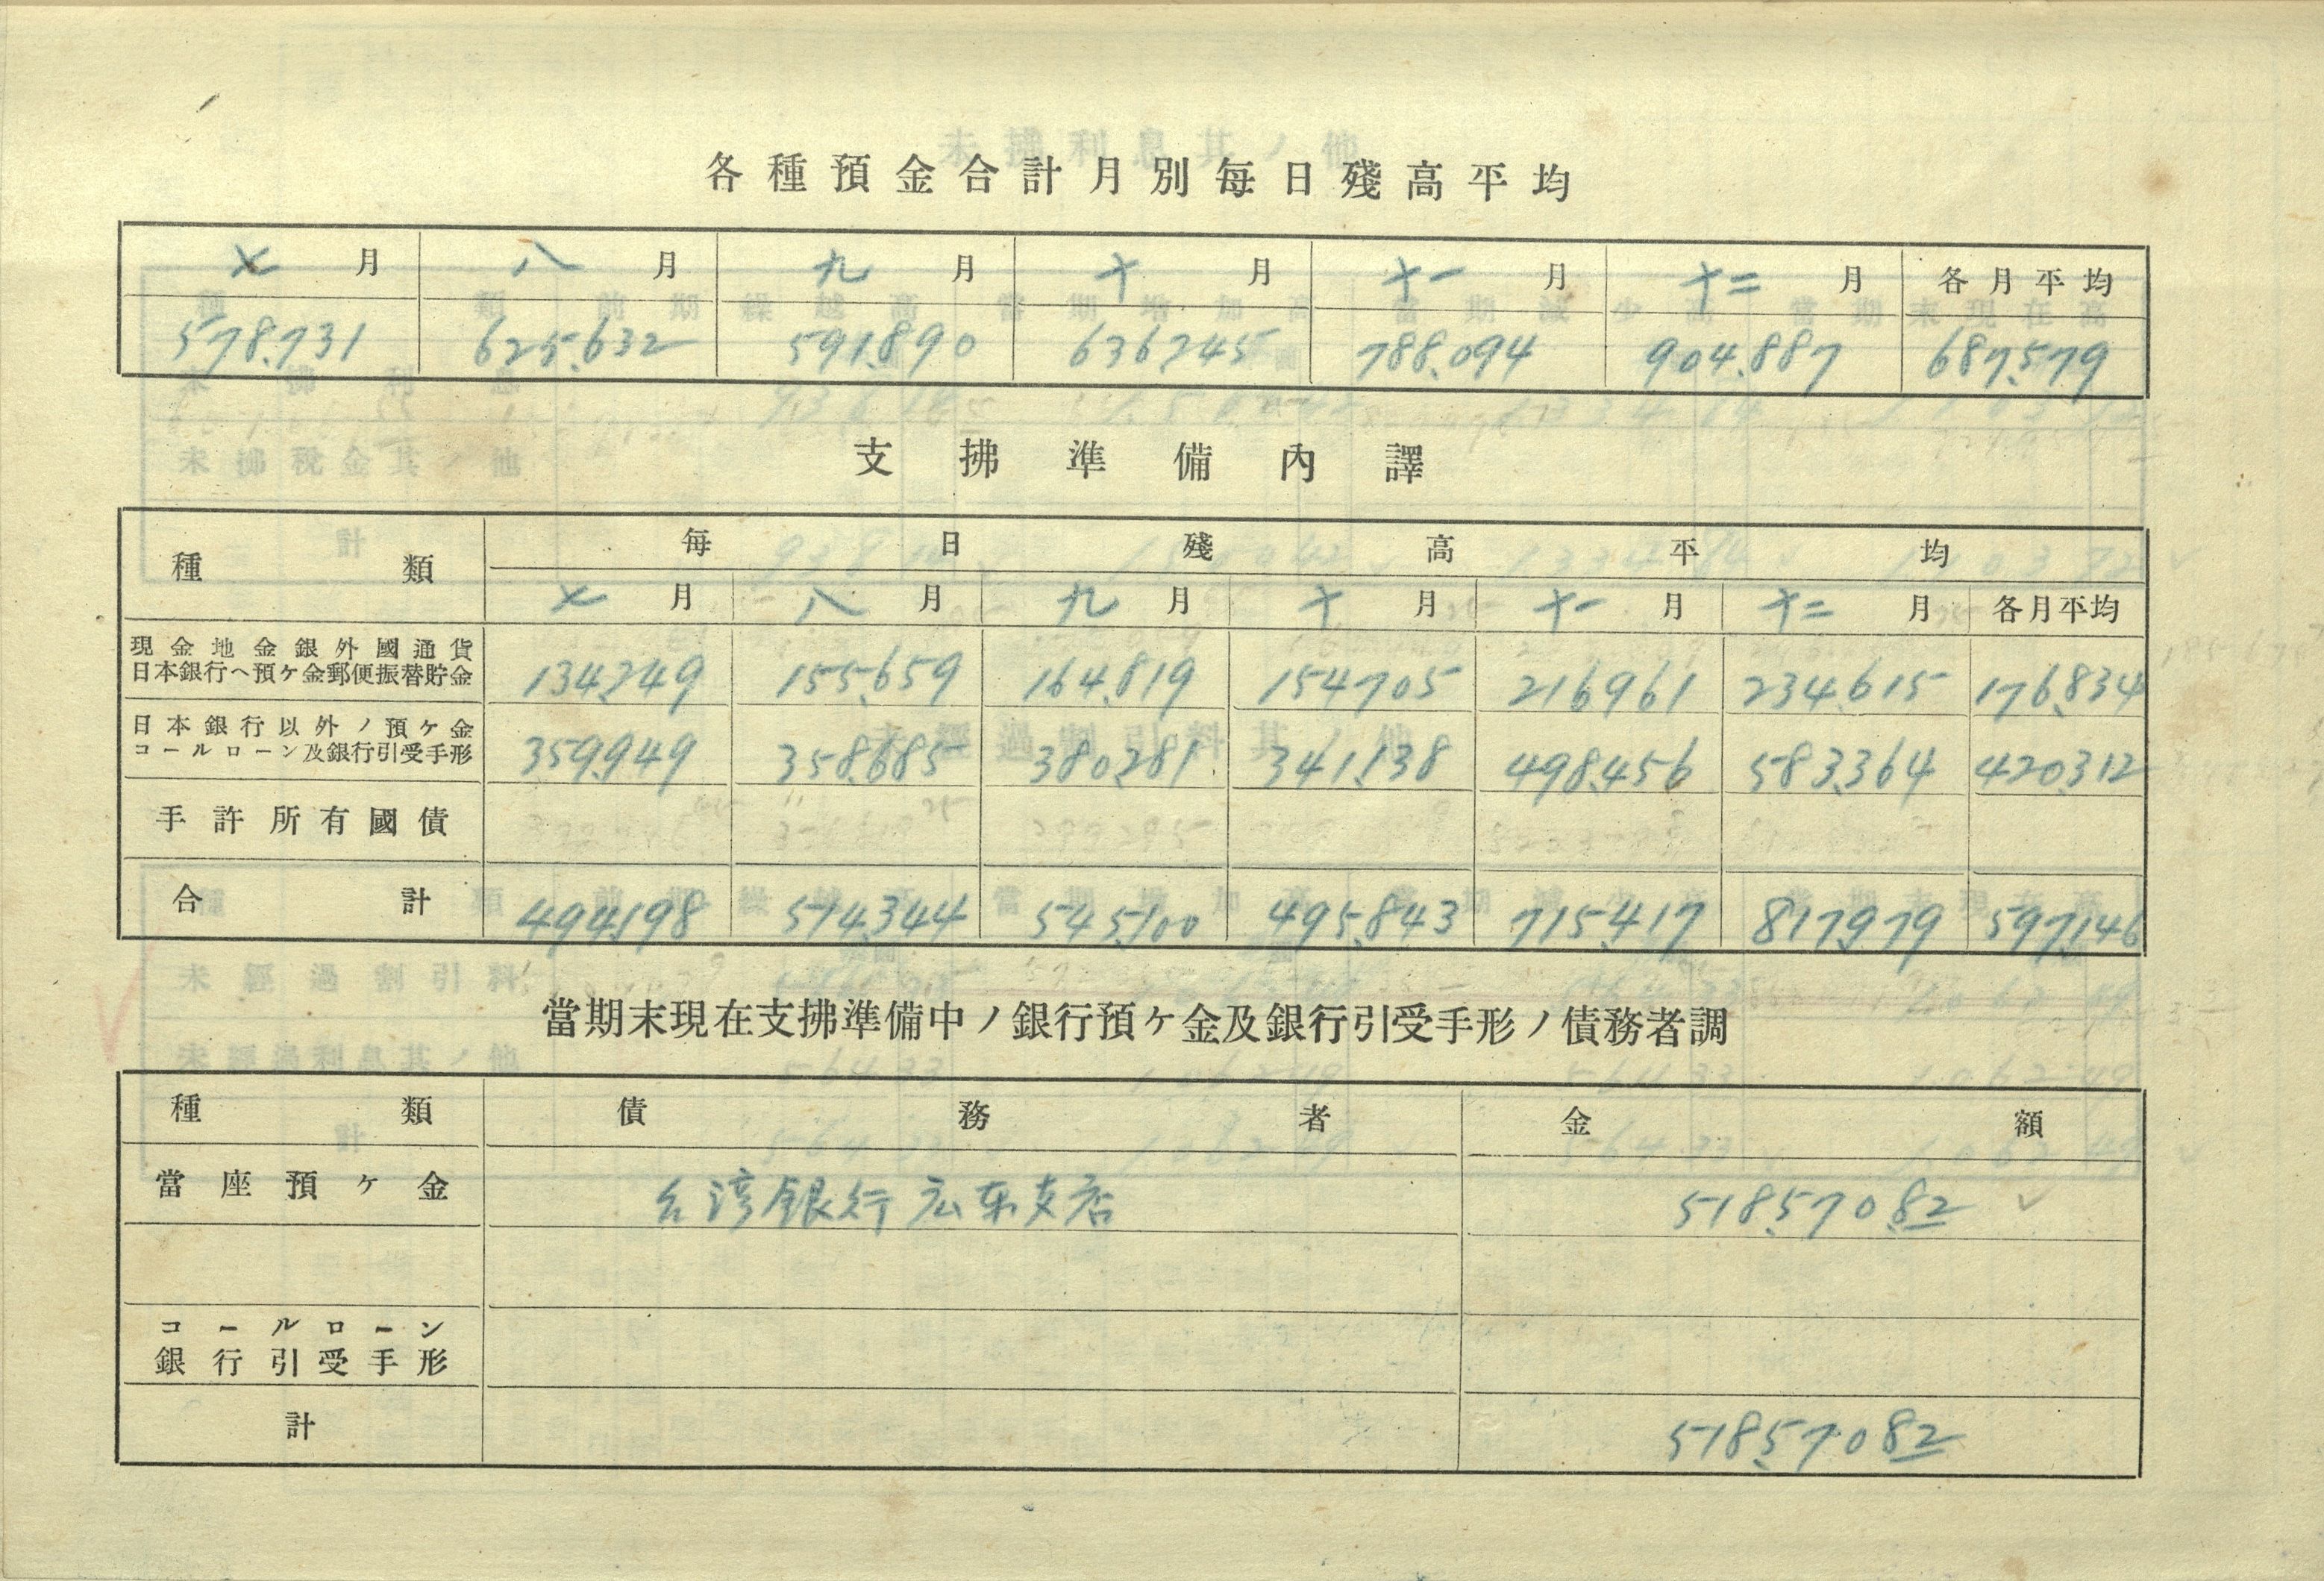 各種預金合計月別每日殘高平均
七月 八月 九月 十月 十一月 十二月 各月平均
578,731 625,632 591,890 636,745 788,094 904,887 687,579
支拂準備內譯
種類 每日殘高平均
七月 八月 九月 十月 十一月 十二月 各月平均
現金地金銀外國通貨
日本銀行ヘ預ケ金郵便振替貯金 134,249 155,659 164,819 154,705 216,961 234,615 176,834
日本銀行以外ノ預ケ金
コールローン及銀行引受手形 359,949 358,685 380,281 341,138 498,456 583,364 420,312
手許所有國債
合計 494,198 514,344 545,100 495,843 715,417 817,979 597,146
當期末現在支拂準備中ノ銀行預ケ金及銀行引受手形ノ債務者調
種類 債務者 金額
當座預ケ金 台湾銀行広東支店 518,570.82
コールローン
銀行引受手形
計 518,570.82